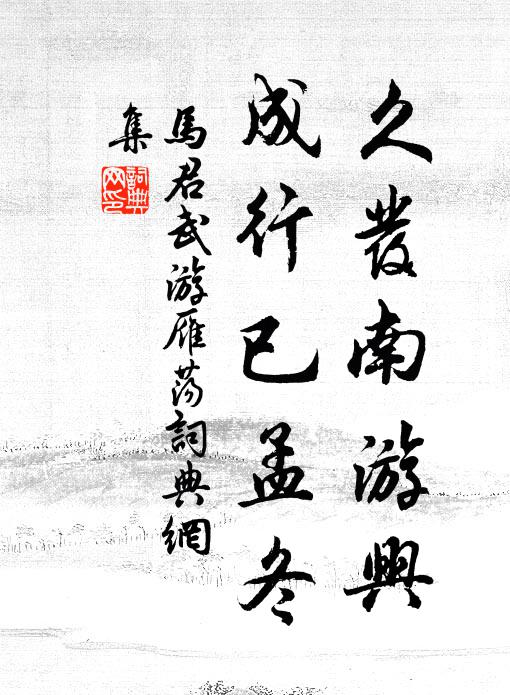 久發南游興
成行已孟冬
馬君武游雁荡詞典網
集
詞典網印